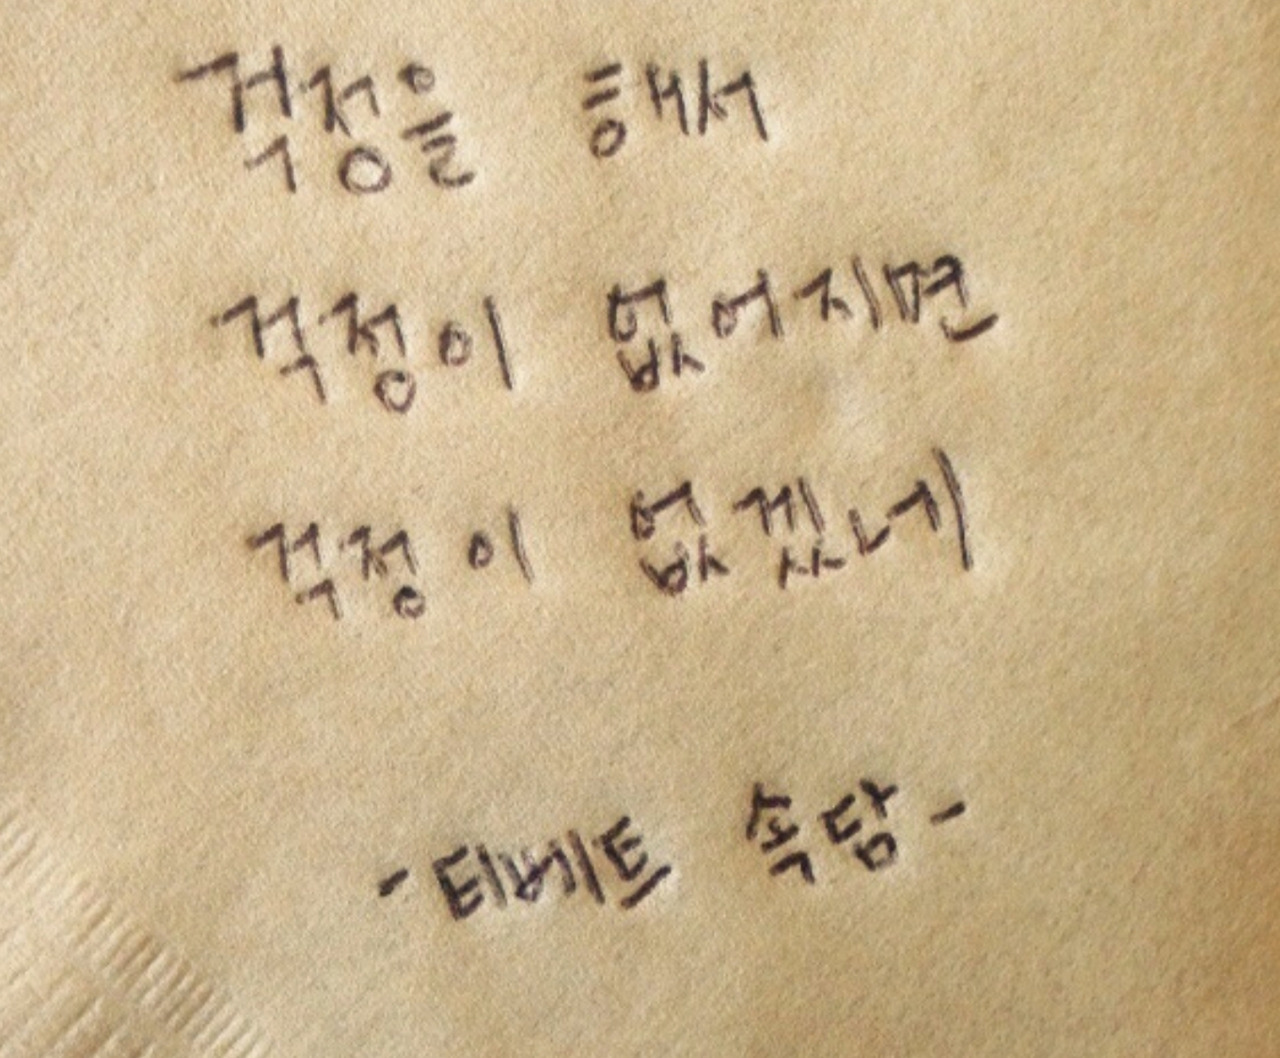 걱정을 해서
걱정이 없어지면
걱정이 없겠네
- 티베트 속담 -